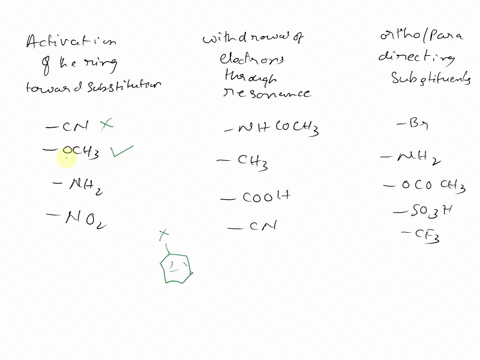 Activation
of the ring
toward substitution
-CN ×
-OCH3 ✓
-NH2
-NO2
withdrowal of
electrons
through
resonance
-NHCOCH3
-CH3
-COOH
-CN
ortho/para
directing
Substituents
-Br
-NH2
-OCOCH3
-SO3H
-CF3
X